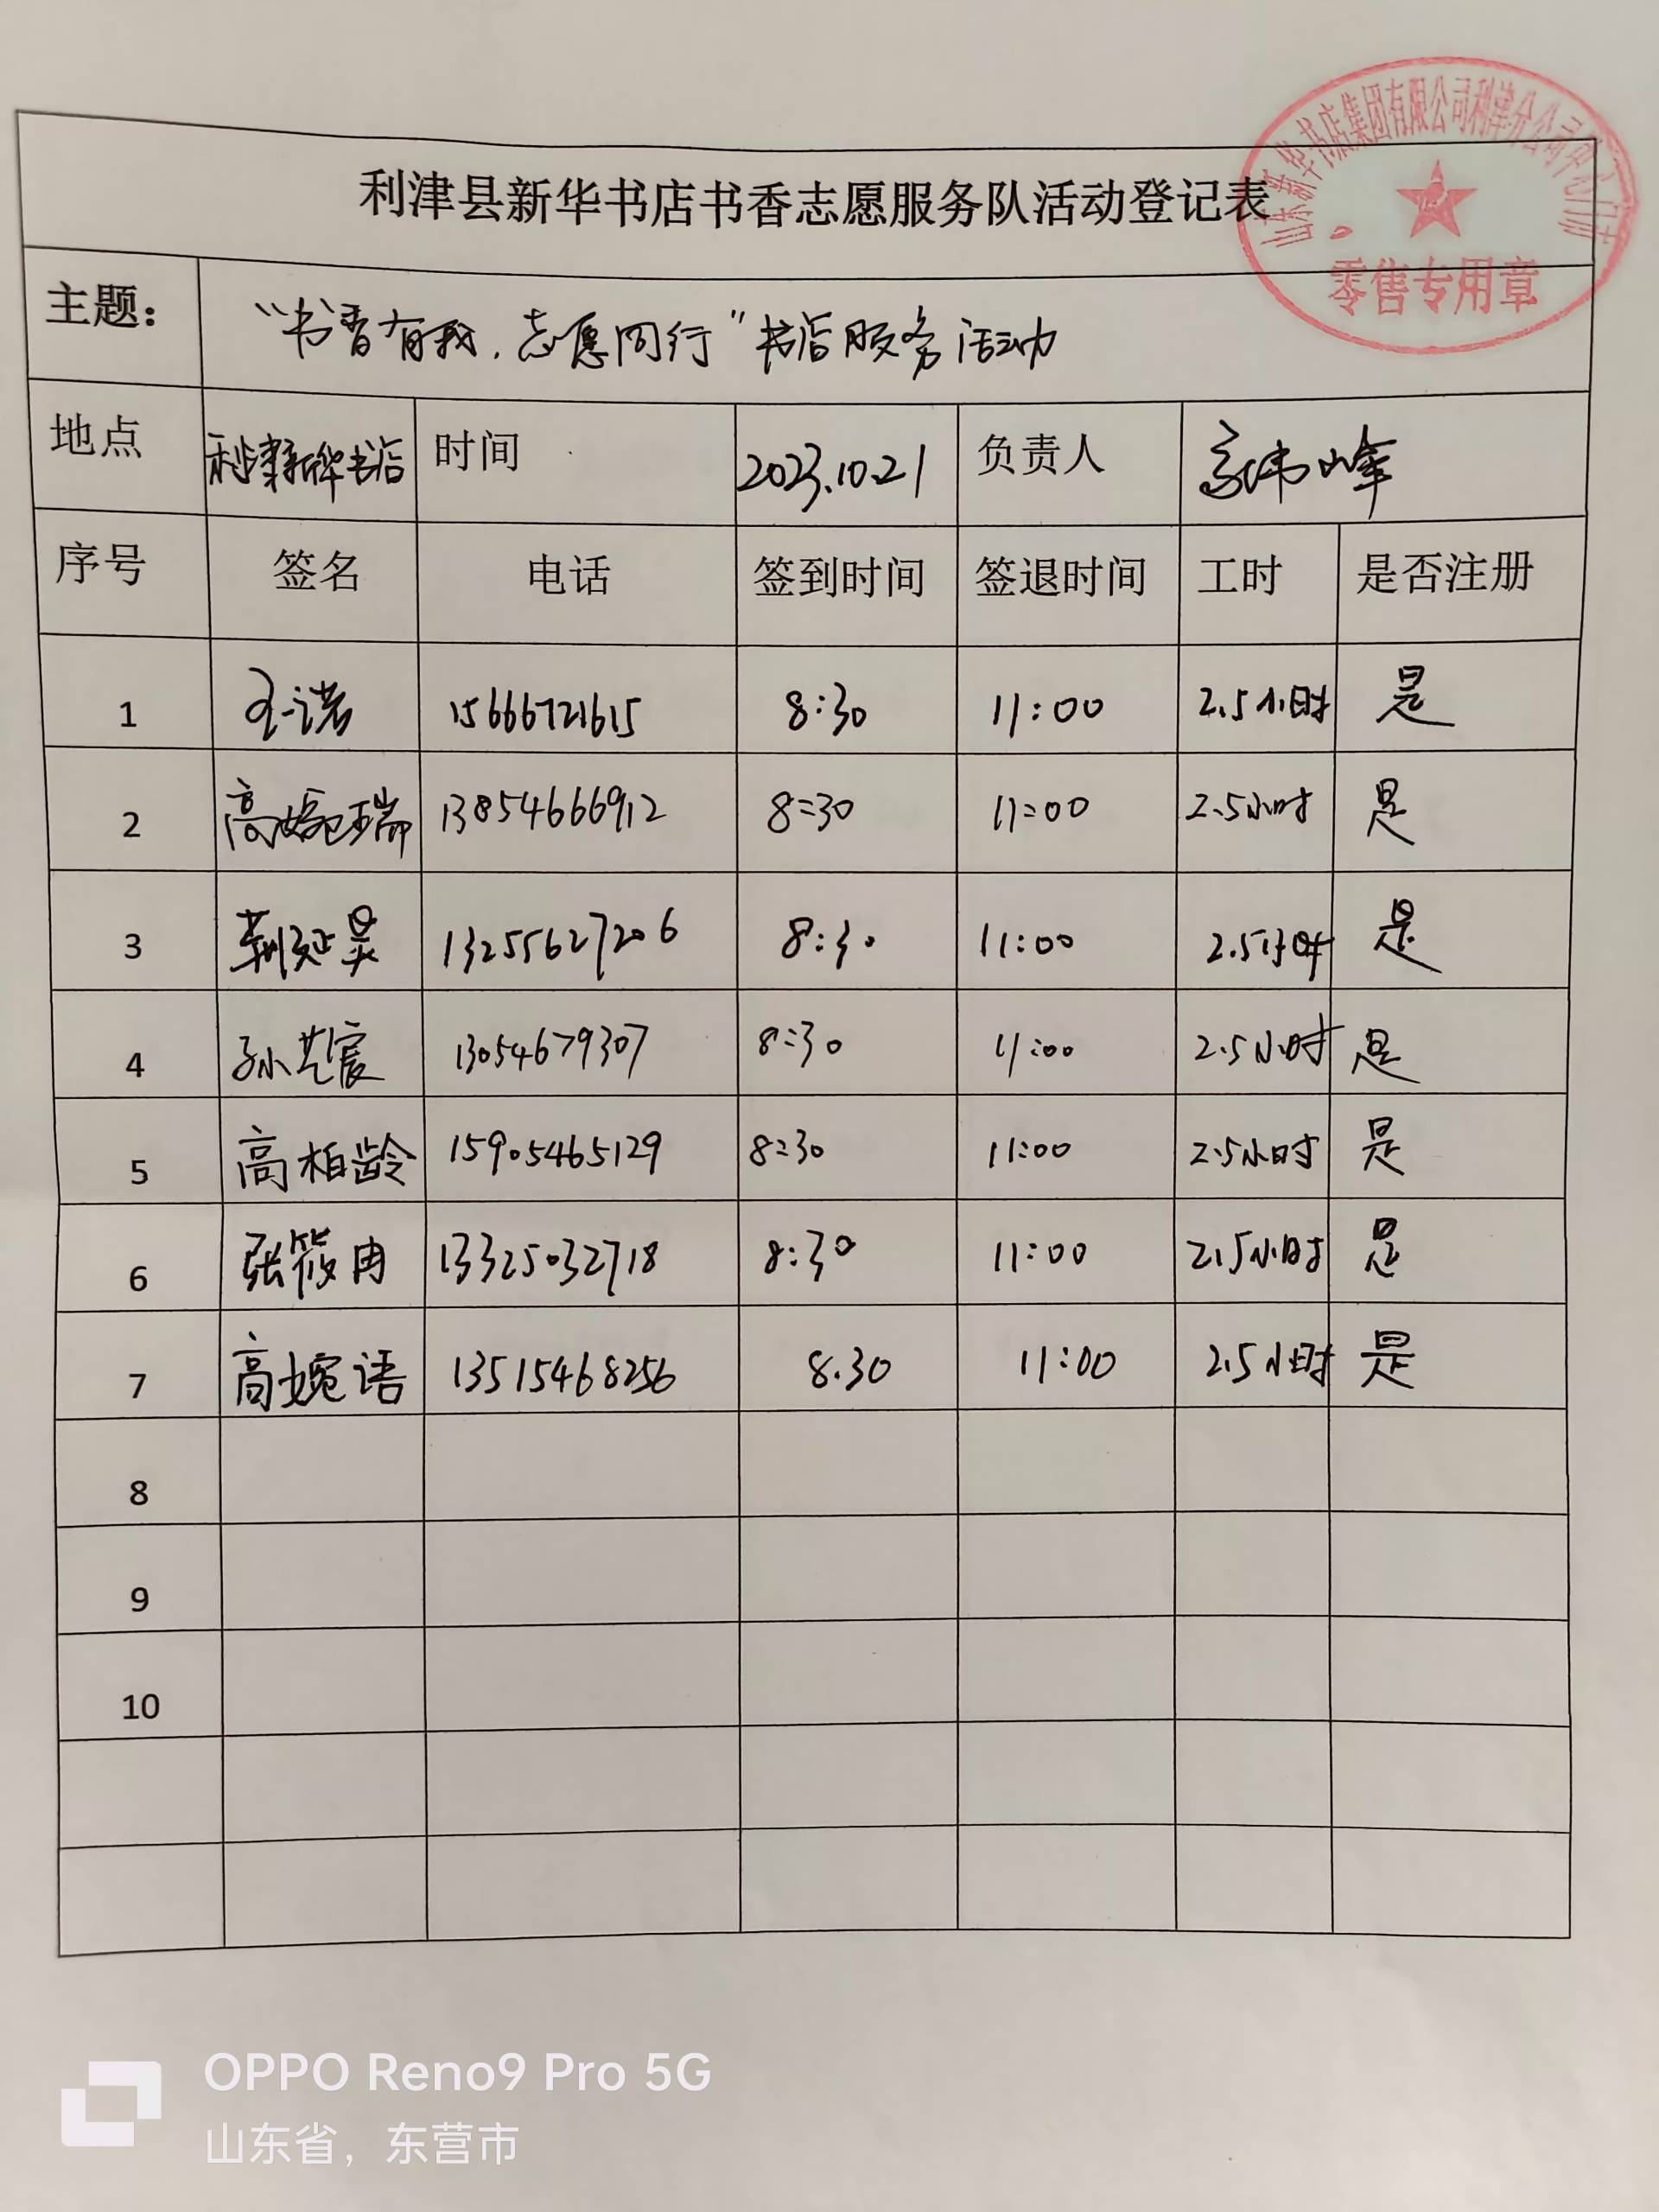 利津县新华书店书香志愿服务队活动登记表
山东新华书店集团有限公司利津分公司中心门市
零售专用章
主题： “书香有我，志愿同行”书店服务活动
地点 利津新华书店 时间 2023.10.21 负责人 高炜峰
序号 签名 电话 签到时间 签退时间 工时 是否注册
1 王一诺 15666721615 8:30 11:00 2.5小时 是
2 高婉瑞 13854666912 8:30 11:00 2.5小时 是
3 荆延昊 13255627206 8:30 11:00 2.5小时 是
4 孙艺宸 13054679307 8:30 11:00 2.5小时 是
5 高柏龄 15905465129 8:30 11:00 2.5小时 是
6 张筱冉 13325032718 8:30 11:00 2.5小时 是
7 高婉语 13515468256 8.30 11:00 2.5小时 是
8
9
10
OPPO Reno9 Pro 5G
山东省，东营市